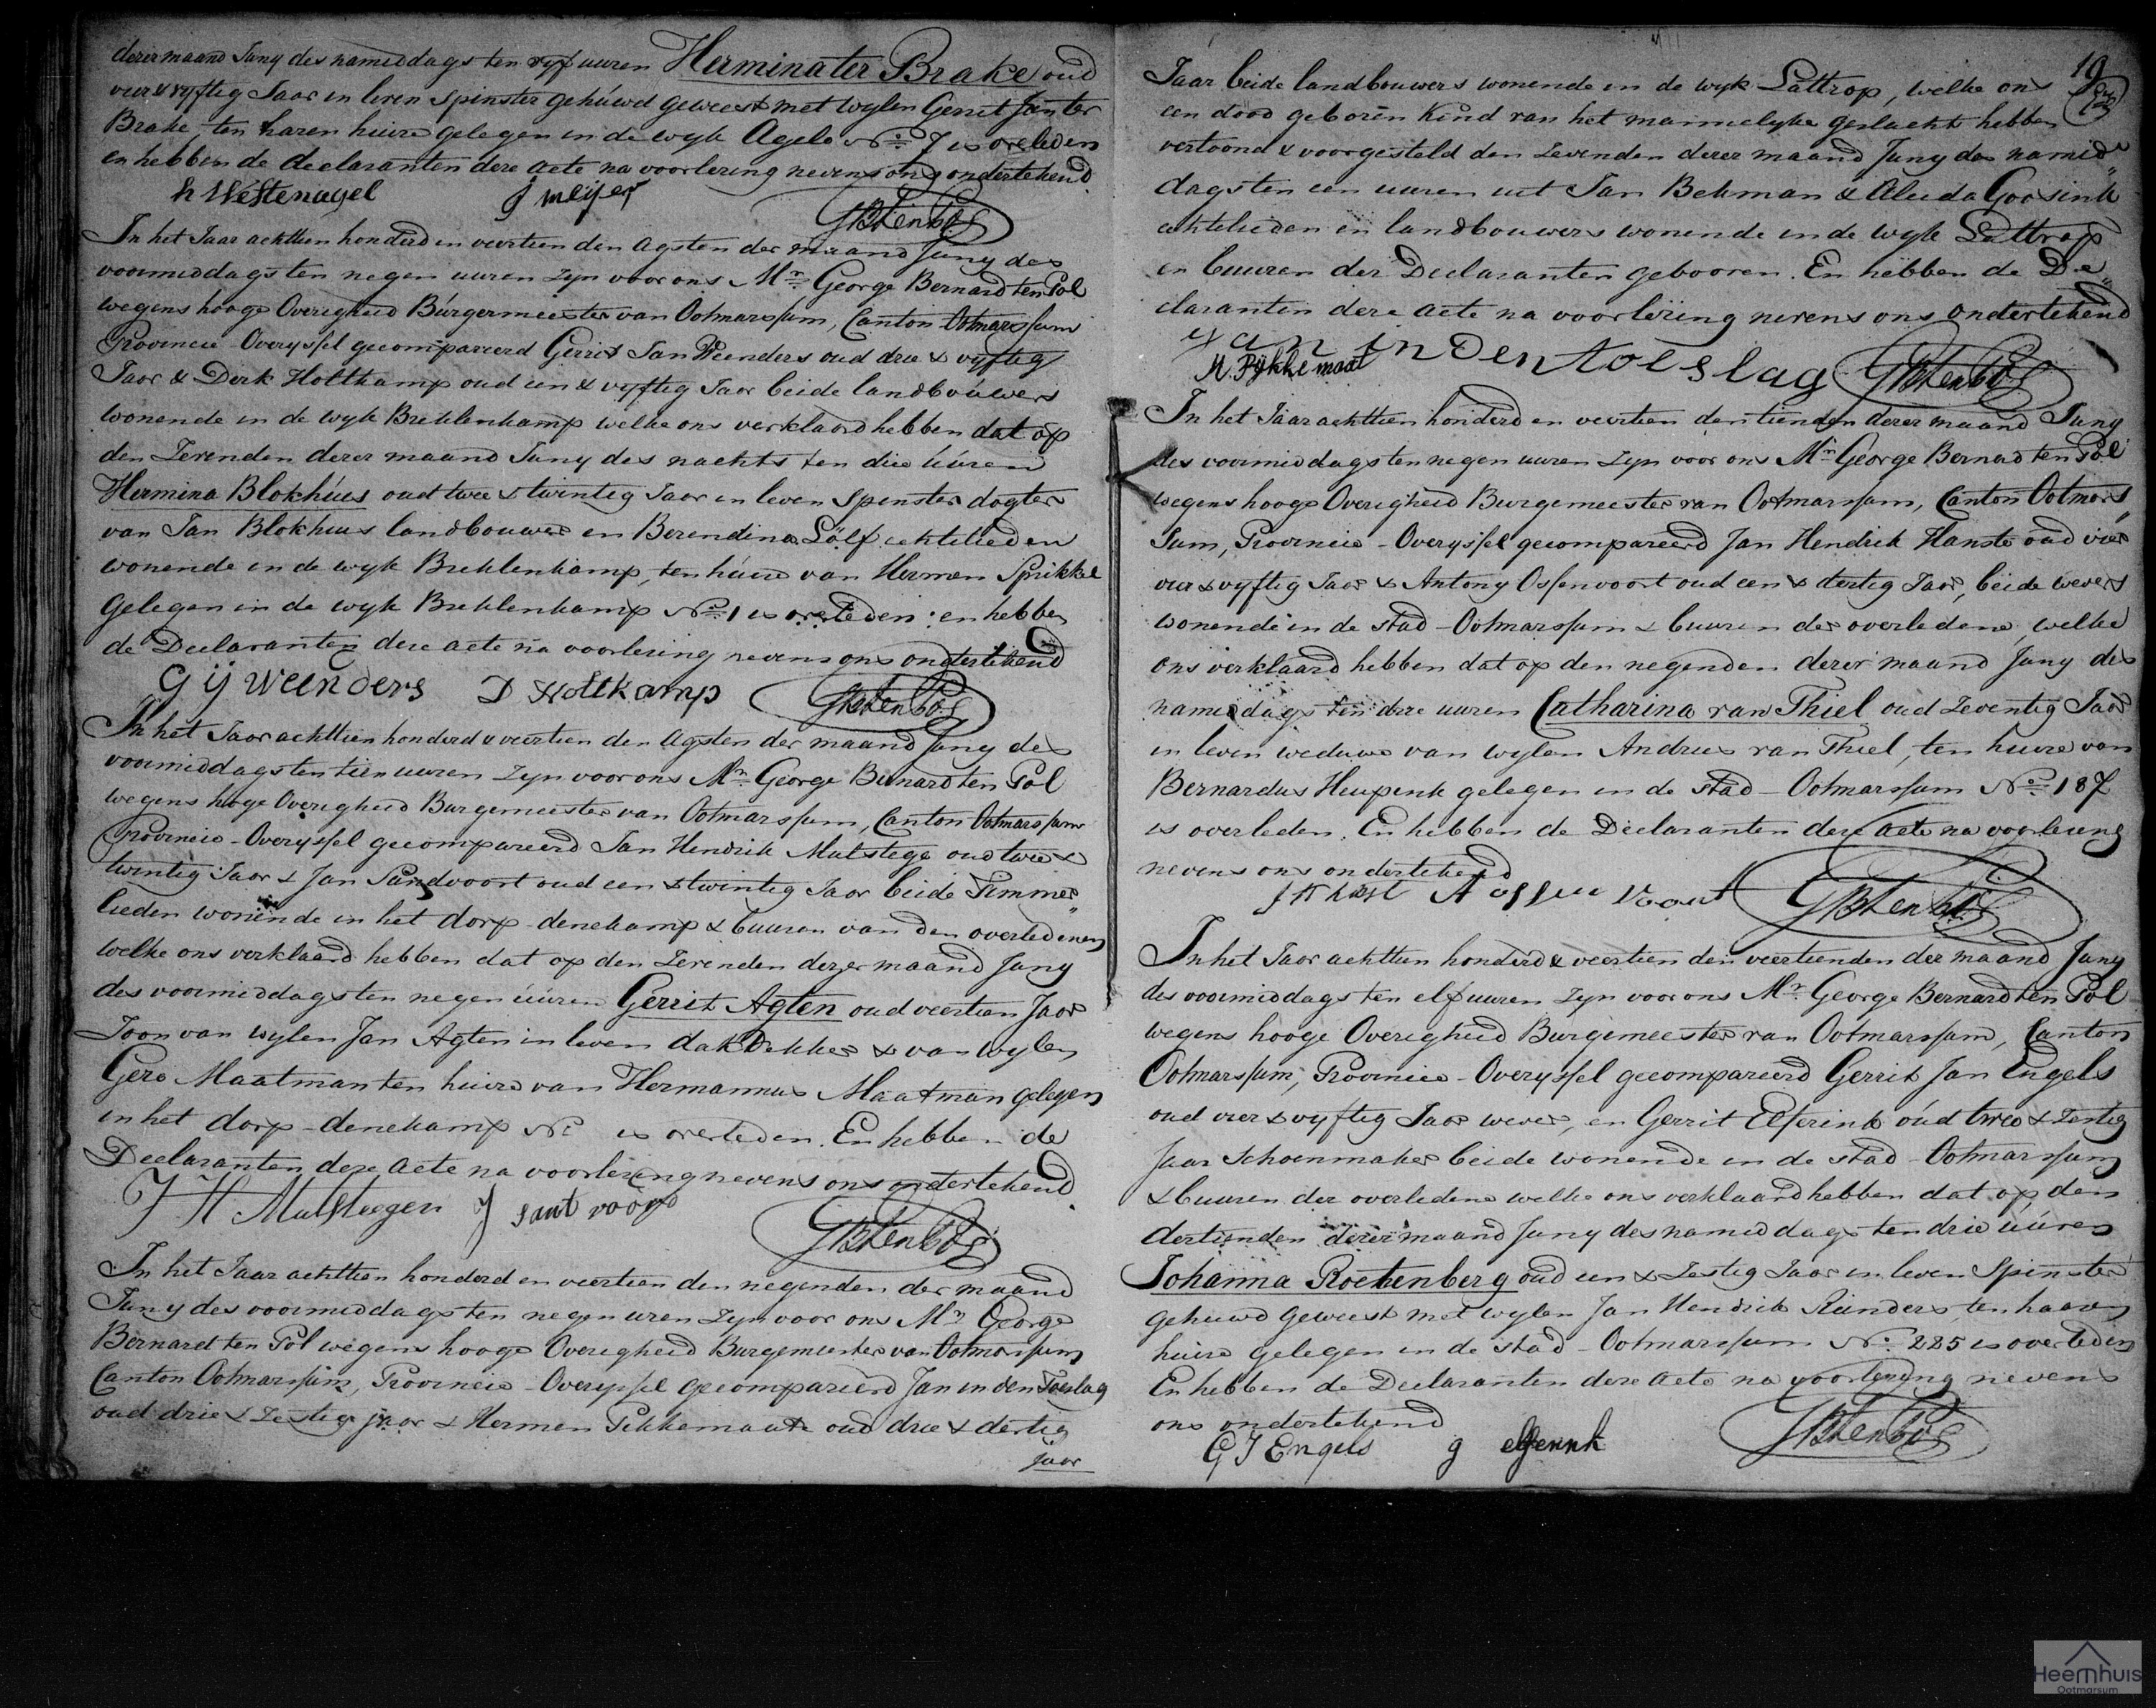 derer maand Juny des nameddags ten vyf uuren Hermina ter Brake oud
vier & vyftig Jaar in leven Spinster gehuwd geweest met wylen Gerrit Jan ter
Brake, ten haren huize gelegen in de wyk Agelo No. 7 is overleden
en hebben de declaranten deze acte na voorlezing nevens ons ondertekend.
h Westenagel J meijer GBtenPol
In het Jaar achttien honderd en veertien den agsten der maand Juny des
voormiddags ten negen uuren zyn voor ons Mr. George Bernard ten Pol
wegens hooge Overigheid Burgermeester van Ootmarssum, Canton Ootmarssum
Provincie Overyssel gecompareerd Gerrit Jan Weenders oud drie & vyftig
Jaar & Derk Holtkamp oud een & vyftig Jaar beide landbouwers
wonende in de wyk Breklenkamp welke ons verklaard hebben dat op
den Zevenden derer maand Juny des nachts ten drie úúren
Hermina Blokhúis oud twee & twintig Jaar in leven Spinster dogter
van Jan Blokhuis landbouwer en Berendina Lölf echtelieden
wonende in de wyk Breklenkamp, ten húize van Hermen Sprikkel
gelegen in de wyk Breklenkamp No. 1 is overleden: en hebben
de Declaranten deze acte na voorlezing nevens ons ondertekend
G ij Weenders D Holtkamp GBtenPol
In het Jaar achttien honderd & veertien den agsten der maand Juny des
voormiddags ten tien uuren zyn voor ons Mr. George Bernard ten Pol
wegens hoge Overigheid Burgemeester van Ootmarssum, Canton Ootmarssum
Provincie Overyssel gecompareerd Jan Hendrik Mulstege oud twee &
twintig Jaar & Jan Sandvoort oud een & twintig Jaar beide Timmer„
lieden wonende in het dorp denekamp & buuren van den overledenen
welke ons verklaard hebben dat op den Zevenden dezer maand Juny
des voormiddags ten negen úúren Gerrit Agten oud veertien Jaar
Zoon van wylen Jan Agten in leven dak Dekker & van wylen
Gera Maatman ten huize van Hermannus Maatman gelegen
in het dorp denekamp No. is overleden. En hebben de
Declaranten deze acte na voorlezing nevens ons ondertekend
J H Mulsteegen J santvoord GBtenPol
In het Jaar achttien honderd en veertien den negenden der maand
Juny des voormiddags ten negen uren zyn voor ons Mr. George
Bernard ten Pol wegens hooge Overigheid Burgemeester van Ootmarssum
Canton Ootmarssum, Provincie Overyssel gecompareerd Jan in den Toeslag
oud drie & Zestig jaar & Hermen Pikkemaate oud drie & dertig
jaar
19
Jaar beide landbouwers wonende in de wyk Lattrop, welke ons
een dood geboren Kind van het mannelyke geslacht hebben
vertoond & voorgesteld den Zevenden derer maand Juny des namid„
dags ten een uuren uit Jan Bekman & Aleida Goosink
echtelieden en landbouwers wonende in de wyk Lattrop
en buuren der Declaranten gebooren. En hebben de De„
claranten deze acte na voorlezing nevens ons ondertekend
Jan in Den toeslag
M. Pijkkemaat GBtenPol
In het Jaar achttien honderd en veertien den tienden derer maand Juny
des voormiddags ten negen uuren zyn voor ons Mr. George Bernard ten Pol
wegens hooge Overigheid Burgemeester van Ootmarssum, Canton Ootmars„
sum, Provincie Overyssel gecompareerd Jan Hendrik Hanste oud vier
vier & vyftig Jaar & Antony Ossenvoort oud een & dertig Jaar, beide wevers
wonende in de stad Ootmarssum & buuren der overledene, welke
ons verklaard hebben dat op den negenden derer maand Juny des
namiddags ten drie uuren Catharina van Thiel oud Zeventig Jaar
in leven weduwe van wylen Andries van Thiel, ten huize van
Bernardus Heupink gelegen in de stad Ootmarssum No. 187
is overleden. En hebben de Declaranten deze acte na voorlezing
nevens ons ondertekend
A ossen voort GBtenPol
In het Jaar achttien honderd & veertien den veertienden der maand Juny
des voormiddags ten elf uuren zyn voor ons Mr. George Bernard ten Pol
wegens hooge Overigheid Burgemeester van Ootmarssum, Canton
Ootmarssum, Provincie Overyssel gecompareerd Gerrit Jan Engels
oud vier & vyftig Jaar wever, en Gerrit Elferink oúd twee & Zestig
Jaar Schoenmaker beide wonende in de stad Ootmarssum
& buuren der overledene welke ons verklaard hebben dat op den
dertienden derer maand Juny des nameddags ten drie úúren
Johanna Roekenberg oud een & Zestig Jaar in leven Spinster
gehuwd geweest met wylen Jan Hendrik Reinders, ten haren
huize gelegen in de stad Ootmarssum No. 225 is overleden
En hebben de Declaranten deze acte na voorlezing nevens
ons ondertekend
G J Engels g elferink GBtenPol
Heemhuis
Ootmarsum